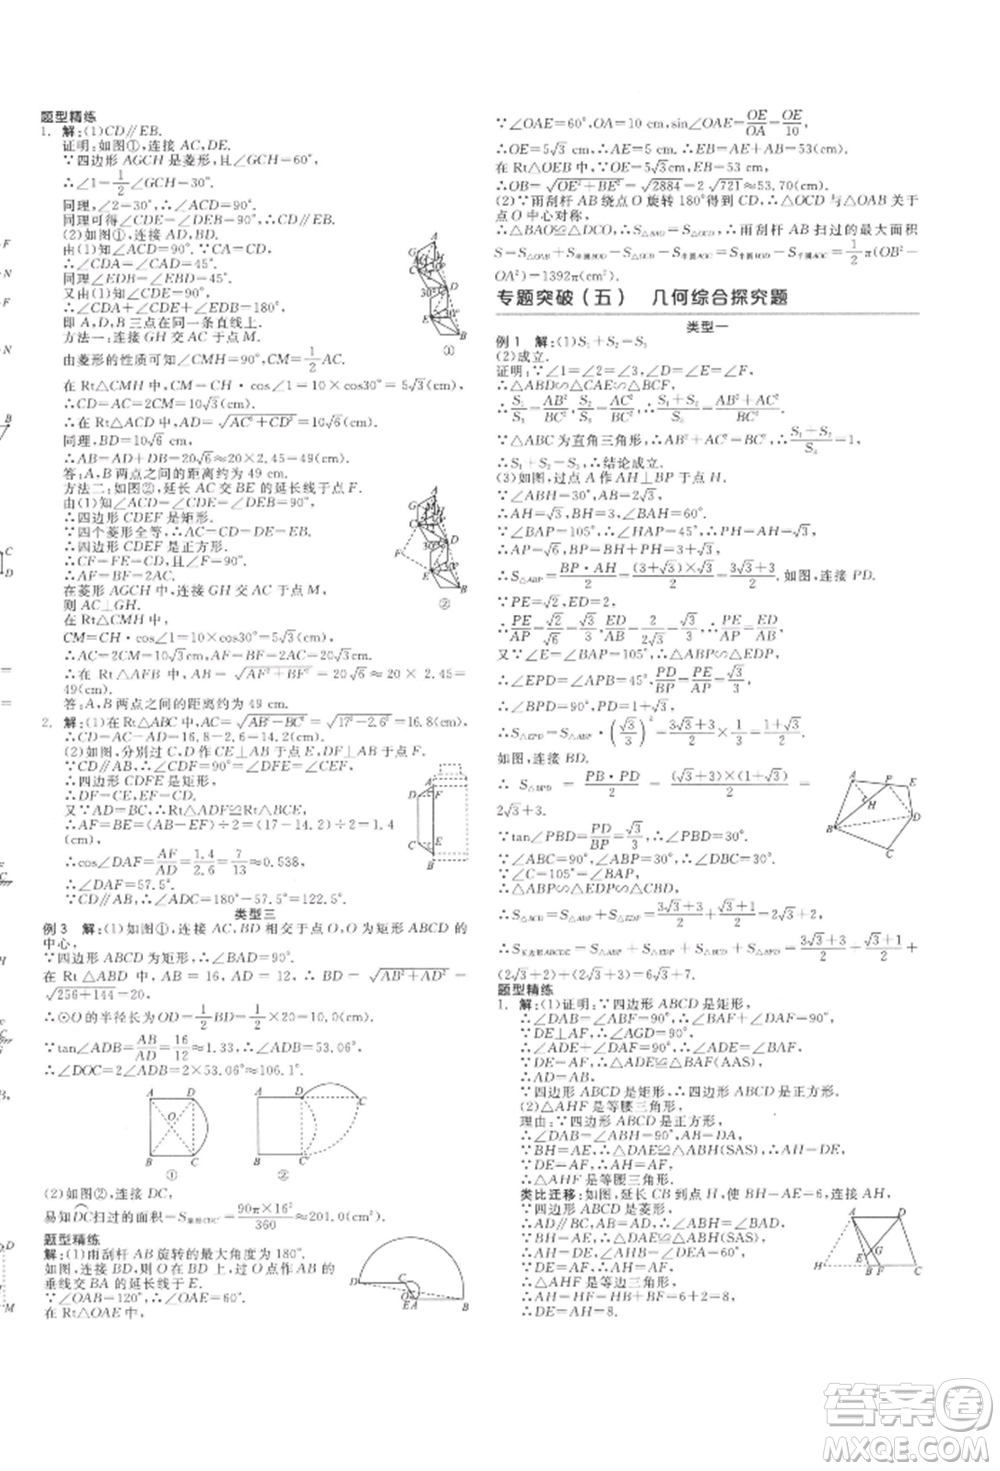 题型精练
1. 解:(1)CD∥EB.
证明:如图①,连接 AC,DE.
∵四边形 AGCH 是菱形,∠GCH=60°,
∴∠1=1/2∠GCH=30°.
同理,∠2=30°,∴∠ACD=90°.
同理可得∠CDE=∠DEB=90°,∴CD∥EB.
(2)如图①,连接 AD,BD.
由(1)知∠ACD=90°.∵CA=CD,
∴∠CDA=∠CAD=45°.
同理,∠BDE=∠EBD=45°.
又由(1)知∠CDE=90°,
∴∠CDA+∠CDE+∠BDE=180°,
即 A,D,B 三点在同一条直线上.
方法一:连接 GH 交 AC 于点 M.
由菱形的性质可知∠CMH=90°,CM=1/2AC.
在 Rt△CMH 中,CM=CH·cos∠1=10×cos30°=5√3(cm),
∴CD=AC=2CM=10√3(cm).
在 Rt△ACD 中,AD=√(AC²+CD²)=10√6(cm).
同理,BD=10√6 cm,
∴AB=AD+BD=20√6≈20×2.45=49(cm).
答:A,B 两点之间的距离约为 49 cm.
方法二:如图②,延长 AC 交 BE 的延长线于点 F.
由(1)知∠ACD=∠CDE=∠DEB=90°,
∴四边形 CDEF 是矩形.
∵四个菱形全等,∴CD=DE,
∴四边形 CDEF 是正方形.
∴CF=FE=CD,∠F=90°.
∴AF=BF=2AC.
在菱形 AGCH 中,连接 GH 交 AC 于点 M,
则 AC⊥GH.
在 Rt△CMH 中,
CM=CH·cos∠1=5√3(cm),
∴AC=2CM=10√3(cm),∴AF=2AC=20√3(cm).
∴在 Rt△AFB 中,AB=√(AF²+BF²)=20√6≈20×2.45=
49(cm).
答:A,B 两点之间的距离约为 49 cm.
2. 解:(1)在 Rt△ABC 中,AC=√(AB²-BC²)=√(17²-2.6²)≈16.8(cm),
∴CD=AC-AD=16.8-2.6=14.2(cm).
(2)如图,分别过 C,D 作 CE⊥AB 于点 E,DF⊥AB 于点 F.
∵CD∥AB,∴∠DCE=90°,
∴四边形 CDFE 是矩形,
∴DF=CE,EF=CD=14.2.
又∵AD=BC,∴Rt△ADF≌Rt△BCE,
∴AF=BE=(AB-EF)÷2=(17-14.2)÷2=1.4
(cm),
∴cos∠DAF=AF/AD=1.4/2.6=7/13≈0.538,
∴∠DAF=57.5°.
∵CD∥AB,∴∠ADC=180°-57.5°=122.5°.
类型三
例 3 解:(1)如图①,连接 AC,BD 相交于点 O,O 为矩形 ABCD 的
中心.
∵四边形 ABCD 为矩形,∴∠BAD=90°.
在 Rt△BAD 中,AB=16,AD=12,∴BD=√(AB²+AD²)=
√(256+144)=20(cm),
∴⊙O 的半径长为 OD=1/2BD=1/2×20=10(cm).
∵tan∠ADB=AB/AD=16/12≈1.33,∴∠ADB≈53.06°.
∴∠DOC=2∠ADB≈2×53.06°≈106.1°.
A D O B C ①
A D C B C' ②
(2)如图②,连接 DC,
易知DC扫过的面积=S扇形CDC'=90π×16²/360≈201.0(cm²).
题型精练
解:(1)雨刮杆 AB 旋转的最大角度为 180°.
如图,连接 OB,则 O 在 CD 上,过 O 点作 AB 的
垂线交 BA 的延长线于 E.
∵∠OAB=120°,∴∠OAE=60°.
在 Rt△OAE 中,
D C O E A B
∵∠OAE=60°,OA=10 cm,sin∠OAE=OE/OA=OE/10,
∴OE=5√3(cm),∴AE=5 cm.∴EB=AE+AB=53(cm).
在 Rt△OEB 中,∵OE=5√3(cm),EB=53(cm),
∴OB=√(OE²+BE²)=√2884=2√721≈53.70(cm).
(2)∵雨刮杆 AB 绕点 O 旋转 180°得到 CD,∴△OCD 与△OAB 关于
点 O 中心对称,
∴△BAO≌△DCO,∴S△BAO=S△DCO,∴雨刮杆 AB 扫过的最大面积
S=S半圆BOD+S△DCO-S△BAO-S半圆AOC=S半圆BOD-S半圆AOC=1/2π(OB²-
OA²)=1392π(cm²).
专题突破(五) 几何综合探究题
类型一
例 1 解:(1)S₁+S₂=S₃
(2)成立.
证明:∵∠1=∠2=∠3,∠D=∠E=∠F,
∴△ABD∽△CAE∽△BCF,
∴S₁/S₃=AB²/BC²,S₂/S₃=AC²/BC²,∴(S₁+S₂)/S₃=(AB²+AC²)/BC².
∵△ABC 为直角三角形,∴AB²+AC²=BC²,∴(S₁+S₂)/S₃=1,
∴S₁+S₂=S₃,∴结论成立.
(3)如图,过点 A 作 AH⊥BP 于点 H.
∵∠ABH=30°,AB=2√3,
∴AH=√3,BH=3,∠BAH=60°.
∵∠BAP=105°,∴∠HAP=45°,∴PH=AH=√3,
∴S△ABP=BP·AH/2=(3+√3)×√3/2=(3√3+3)/2.如图,连接 PD.
∵PE=√2,ED=2,
∴PE/AP=√2/√6=√3/3,ED/AB=2/2√3=√3/3,∴PE/AP=ED/AB.
又∵∠E=∠BAP=105°,∴△ABP∽△EDP,
∴∠EPD=∠APB=45°,PD/BP=PE/AP=√3/3,
∴∠BPD=90°,PD=1+√3,
∴S△EPD=S△ABP·(√3/3)²=(3√3+3)/2×1/3=(√3+1)/2.
如图,连接 BD.
∴S△BPD=PB·PD/2=(3+√3)×(1+√3)/2=
2√3+3.
∵tan∠PBD=PD/BP=√3/3,∴∠PBD=30°.
∵∠ABC=90°,∠ABP=30°,∴∠DBC=30°.
∵∠C=105°,∴△ABP∽△EDP∽△CBD.
∴S△BCD=S△ABP+S△EDP=(3√3+3)/2+(√3+1)/2=2√3+2,
∴S五边形ABCDE=S△ABP+S△EPD+S△BCD+S△BPD=(3√3+3)/2+(√3+1)/2+
(2√3+2)+(2√3+3)=6√3+7.
A P E H D B C
题型精练
1. 解:(1)证明:∵四边形 ABCD 是矩形,
∴∠DAB=∠ABF=90°,∴∠BAF+∠DAF=90°.
∵DE⊥AF,∴∠AGD=90°,
∴∠ADE+∠DAF=90°,∴∠ADE=∠BAF.
∵DE=AF,∴△ADE≌△BAF(AAS),
∴AD=AB.
∵四边形 ABCD 是矩形,∴四边形 ABCD 是正方形.
(2)△AHF 是等腰三角形,
理由:∵四边形 ABCD 是正方形,
∴∠DAB=∠ABH=90°,AB=DA,
∵BH=AE,∴△DAE≌△ABH(SAS),∴AH=DE.
∵DE=AF,∴AH=AF,
∴△AHF 是等腰三角形.
类比迁移:如图,延长 CB 到点 H,使 BH=AE=6,连接 AH,
∵四边形 ABCD 是菱形,
∴AD∥BC,AB=AD,
∴∠ABH=∠BAD.
∵BH=AE,
∴△DAE≌△ABH(SAS),
∴AH=DE,∠AHB=∠DEA=60°.
∵DE=AF,∴AH=AF,
∴△AHF 是等边三角形,
∴AH=HF=HB+BF=6+2=8,
∴DE=AH=8.
A D E G H B F C
答案圈
MXQE.COM